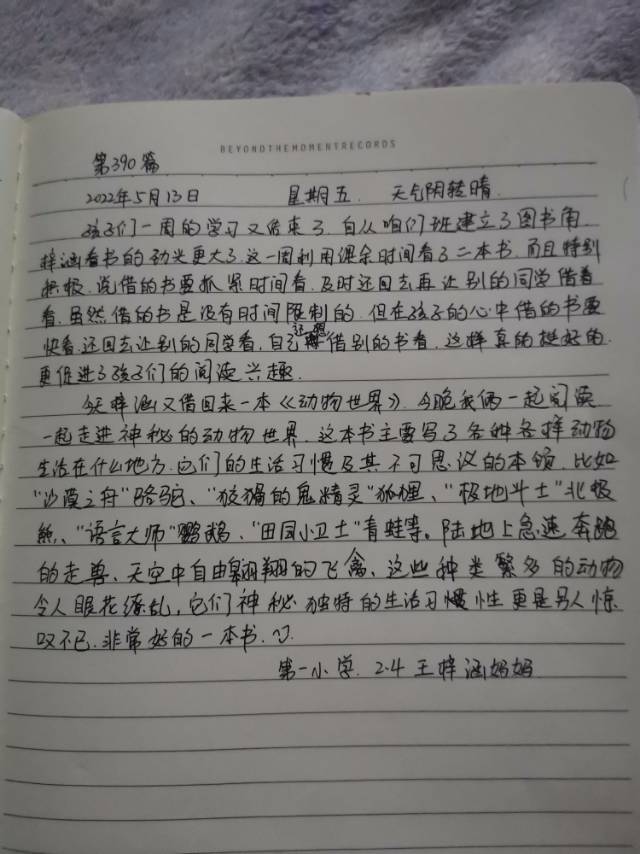 BEYONDTHEMOMENTRECORDS
第390篇
2022年5月13日 星期五. 天气阴转晴.
孩子们一周的学习又结束了.自从咱们班建立了图书角.
梓涵看书的劲头更大了.这一周利用课余时间看了二本书.而且特别
积极.说借的书要抓紧时间看.及时还回去再让别的同学借着
看.虽然借的书是没有时间限制的.但在孩子的心中借的书要
快看.还回去让别的同学看,自己借别的书看.这样真的挺好的.
更促进了孩子们的阅读兴趣.
今天梓涵又借回来一本《动物世界》.今晚我俩一起阅读
一起走进神秘的动物世界.这本书主要写了各种各样动物
生活在什么地方.它们的生活习惯及其不可思议的本领.比如
“沙漠之舟”骆驼、“狡猾的鬼精灵”狐狸、“极地斗士”北极
熊、“语言大师”鹦鹉、“田园小卫士”青蛙等。陆地上急速奔跑
的走兽、天空中自由翱翔的飞禽、这些种类繁多的动物
令人眼花缭乱,它们神秘独特的生活习惯性更是另人惊
叹不已.非常好的一本书.
第一小学.2.4王梓涵妈妈